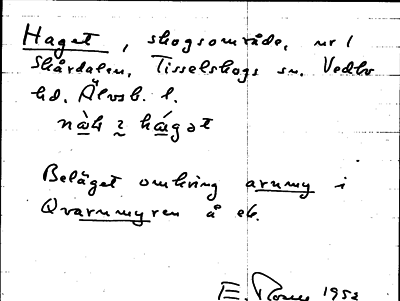 Haget, skogsområde, nr 1
Skårdalen, Tisselskogs sn. Vedbo
hd. Älvsb. l.
hágat
Beläget omkring arumy i
Qvarnmyren å ek.
E. 1952